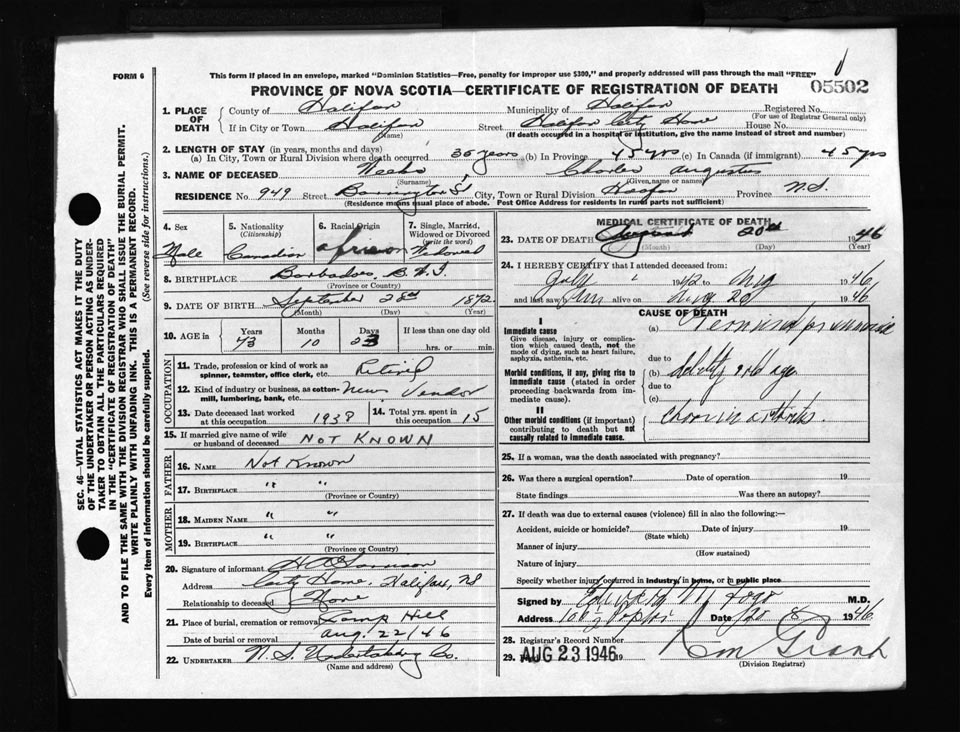 FORM 6
This form if placed in an envelope, marked "Dominion Statistics—Free, penalty for improper use $300," and properly addressed will pass through the mail "FREE"
05502
PROVINCE OF NOVA SCOTIA—CERTIFICATE OF REGISTRATION OF DEATH
1. PLACE OF DEATH
County of Halifax Municipality of Halifax Registered No.
(For use of Registrar General only)
If in City or Town Halifax Street Halifax City Home House No.
(Name) (If death occurred in a hospital or institution, give the name instead of street and number)
2. LENGTH OF STAY (in years, months and days)
(a) In City, Town or Rural Division where death occurred 35 years (b) In Province 45 yrs (c) In Canada (if immigrant) 45 yrs
3. NAME OF DECEASED Weeks Charles Augustus
(Surname) (Given name or names)
RESIDENCE No. 949 Street Barrington St City, Town or Rural Division Province N.S.
(Residence means usual place of abode. Post Office Address for residents in rural parts not sufficient)
4. Sex
Male
5. Nationality
(Citizenship)
Canadian
6. Racial Origin
African
7. Single, Married, Widowed or Divorced
(write the word)
Widowed
8. BIRTHPLACE Barbados, B.W.I.
(Province or Country)
9. DATE OF BIRTH September 28th 1872
(Month) (Day) (Year)
10. AGE in Years Months Days If less than one day old
73 10 23 hrs. or min.
OCCUPATION
11. Trade, profession or kind of work as spinner, teamster, office clerk, etc. Retired
12. Kind of industry or business, as cotton-mill, lumbering, bank, etc. News Vendor
13. Date deceased last worked at this occupation 1938
14. Total yrs. spent in this occupation 15
15. If married give name of wife or husband of deceased NOT KNOWN
FATHER
16. NAME Not Known
17. BIRTHPLACE " "
(Province or Country)
MOTHER
18. MAIDEN NAME " "
19. BIRTHPLACE " "
(Province or Country)
20. Signature of informant
Address City Home, Halifax, NS
Relationship to deceased None
21. Place of burial, cremation or removal Camp Hill
Date of burial or removal Aug. 22/46
22. UNDERTAKER N.S. Undertaking Co.
(Name and address)
MEDICAL CERTIFICATE OF DEATH
23. DATE OF DEATH August 20th 1946
(Month) (Day) (Year)
24. I HEREBY CERTIFY that I attended deceased from
July 1942 to Aug 1946
and last saw him alive on Aug 20 1946
CAUSE OF DEATH
I
Immediate cause
Give disease, injury or complication which caused death, not the mode of dying, such as heart failure, asphyxia, asthenia, etc.
(a) Terminal pneumonia
due to
Morbid conditions, if any, giving rise to immediate cause (stated in order proceeding backwards from immediate cause).
(b) debility old age
due to
(c)
II
Other morbid conditions (if important) contributing to death but not causally related to immediate cause.
25. If a woman, was the death associated with pregnancy?
26. Was there a surgical operation? Date of operation 19
State findings Was there an autopsy?
27. If death was due to external causes (violence) fill in also the following:—
Accident, suicide or homicide? Date of injury 19
(State which)
Manner of injury
(How sustained)
Nature of injury
Specify whether injury occurred in industry, in home, or in public place
Signed by M.D.
Address Date 20 8 1946
28. Registrar's Record Number
29. AUG 23 1946 19
(Division Registrar)
SEC. 46—VITAL STATISTICS ACT MAKES IT THE DUTY
OF THE UNDERTAKER OR PERSON ACTING AS UNDER-
TAKER TO OBTAIN ALL THE PARTICULARS REQUIRED
IN THE "CERTIFICATE OF REGISTRATION OF DEATH"
AND TO FILE THE SAME WITH THE DIVISION REGISTRAR WHO SHALL ISSUE THE BURIAL PERMIT.
WRITE PLAINLY WITH UNFADING INK. THIS IS A PERMANENT RECORD.
Every item of information should be carefully supplied. (See reverse side for instructions.)